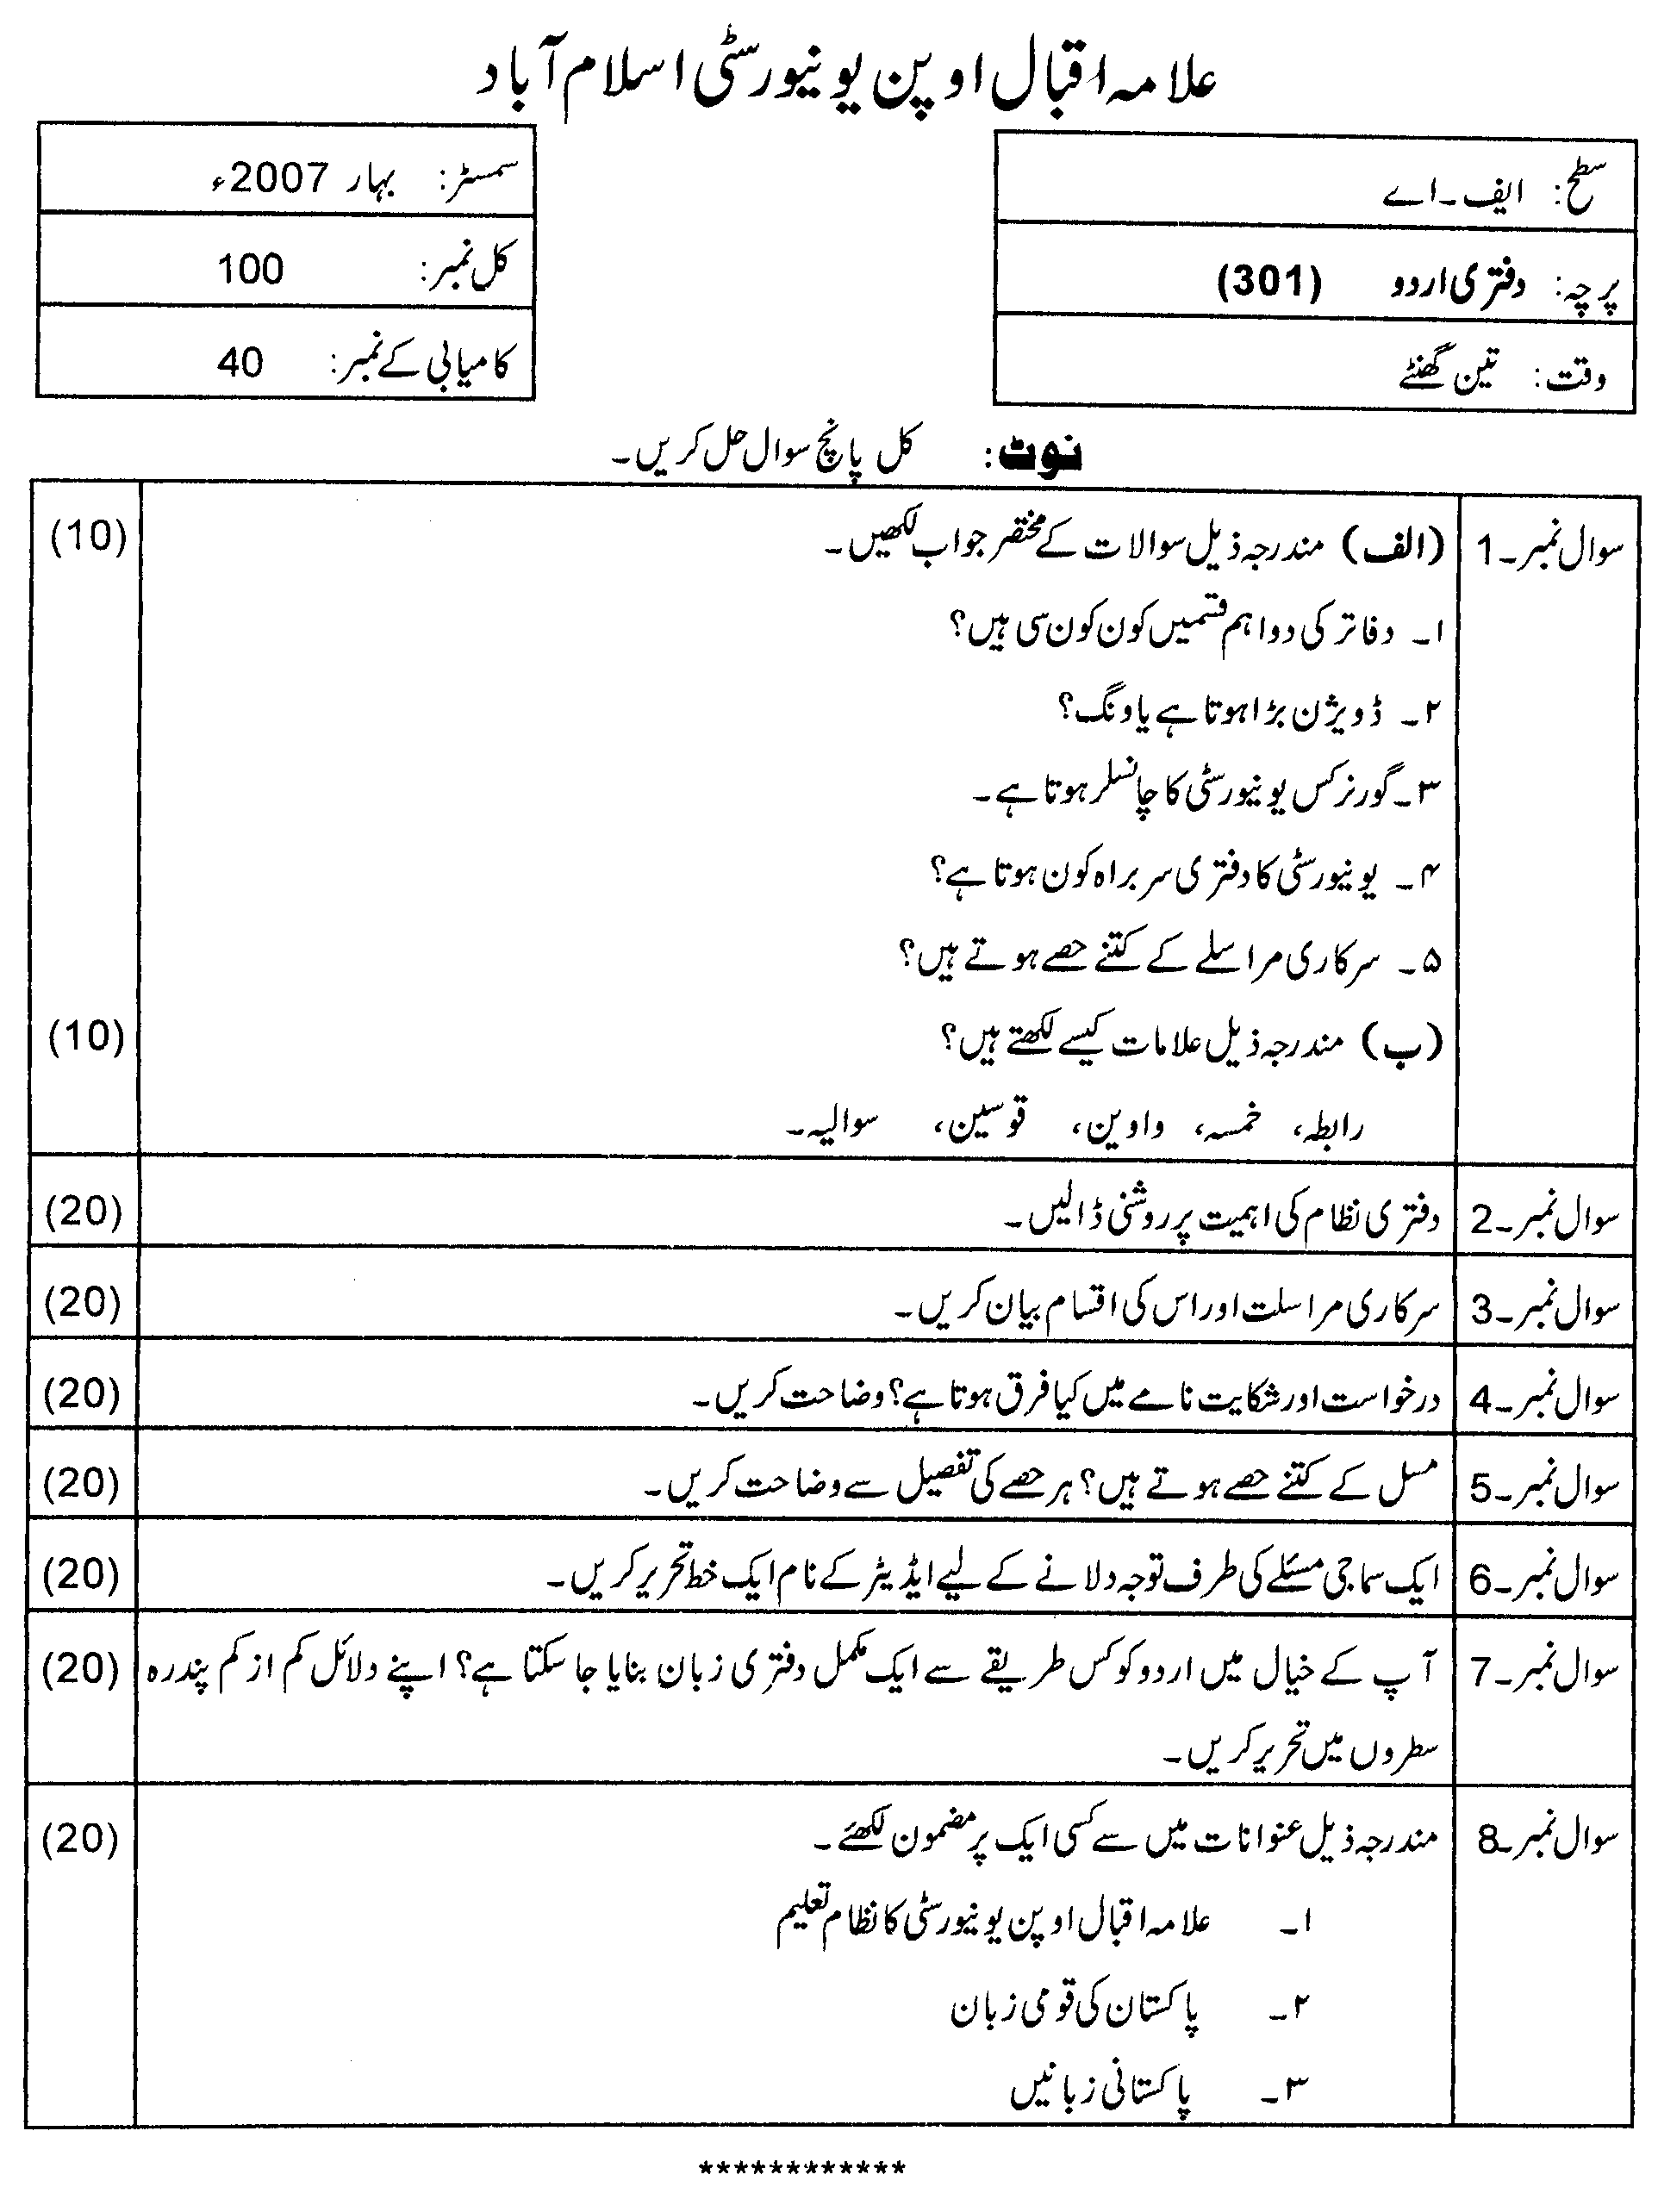 علامہ اقبال اوپن یونیورسٹی اسلام آباد
سطح: ایف۔اے
سمسٹر: بہار 2007ء
پرچہ: دفتری اردو (301)
کل نمبر: 100
وقت: تین گھنٹے
کامیابی کے نمبر: 40
نوٹ: کل پانچ سوال حل کریں۔
سوال نمبر۔1 (الف) مندرجہ ذیل سوالات کے مختصر جواب لکھیں۔ (10)
۱۔ دفاتر کی دو اہم قسمیں کون کون سی ہیں؟
۲۔ ڈویژن بڑا ہوتا ہے یا ونگ؟
۳۔ گورنر کس یونیورسٹی کا چانسلر ہوتا ہے۔
۴۔ یونیورسٹی کا دفتری سربراہ کون ہوتا ہے؟
۵۔ سرکاری مراسلے کے کتنے حصے ہوتے ہیں؟
(ب) مندرجہ ذیل علامات کیسے لکھتے ہیں؟ (10)
رابطہ، خمسہ، واوین، قوسین، سوالیہ۔
سوال نمبر۔2 دفتری نظام کی اہمیت پر روشنی ڈالیں۔ (20)
سوال نمبر۔3 سرکاری مراسلت اور اس کی اقسام بیان کریں۔ (20)
سوال نمبر۔4 درخواست اور شکایت نامے میں کیا فرق ہوتا ہے؟ وضاحت کریں۔ (20)
سوال نمبر۔5 مسل کے کتنے حصے ہوتے ہیں؟ ہر حصے کی تفصیل سے وضاحت کریں۔ (20)
سوال نمبر۔6 ایک سماجی مسئلے کی طرف توجہ دلانے کے لیے ایڈیٹر کے نام ایک خط تحریر کریں۔ (20)
سوال نمبر۔7 آپ کے خیال میں اردو کو کس طریقے سے ایک مکمل دفتری زبان بنایا جا سکتا ہے؟ اپنے دلائل کم از کم پندرہ (20)
سطروں میں تحریر کریں۔
سوال نمبر۔8 مندرجہ ذیل عنوانات میں سے کسی ایک پر مضمون لکھئے۔ (20)
۱۔ علامہ اقبال اوپن یونیورسٹی کا نظام تعلیم
۲۔ پاکستان کی قومی زبان
۳۔ پاکستانی زبانیں
************